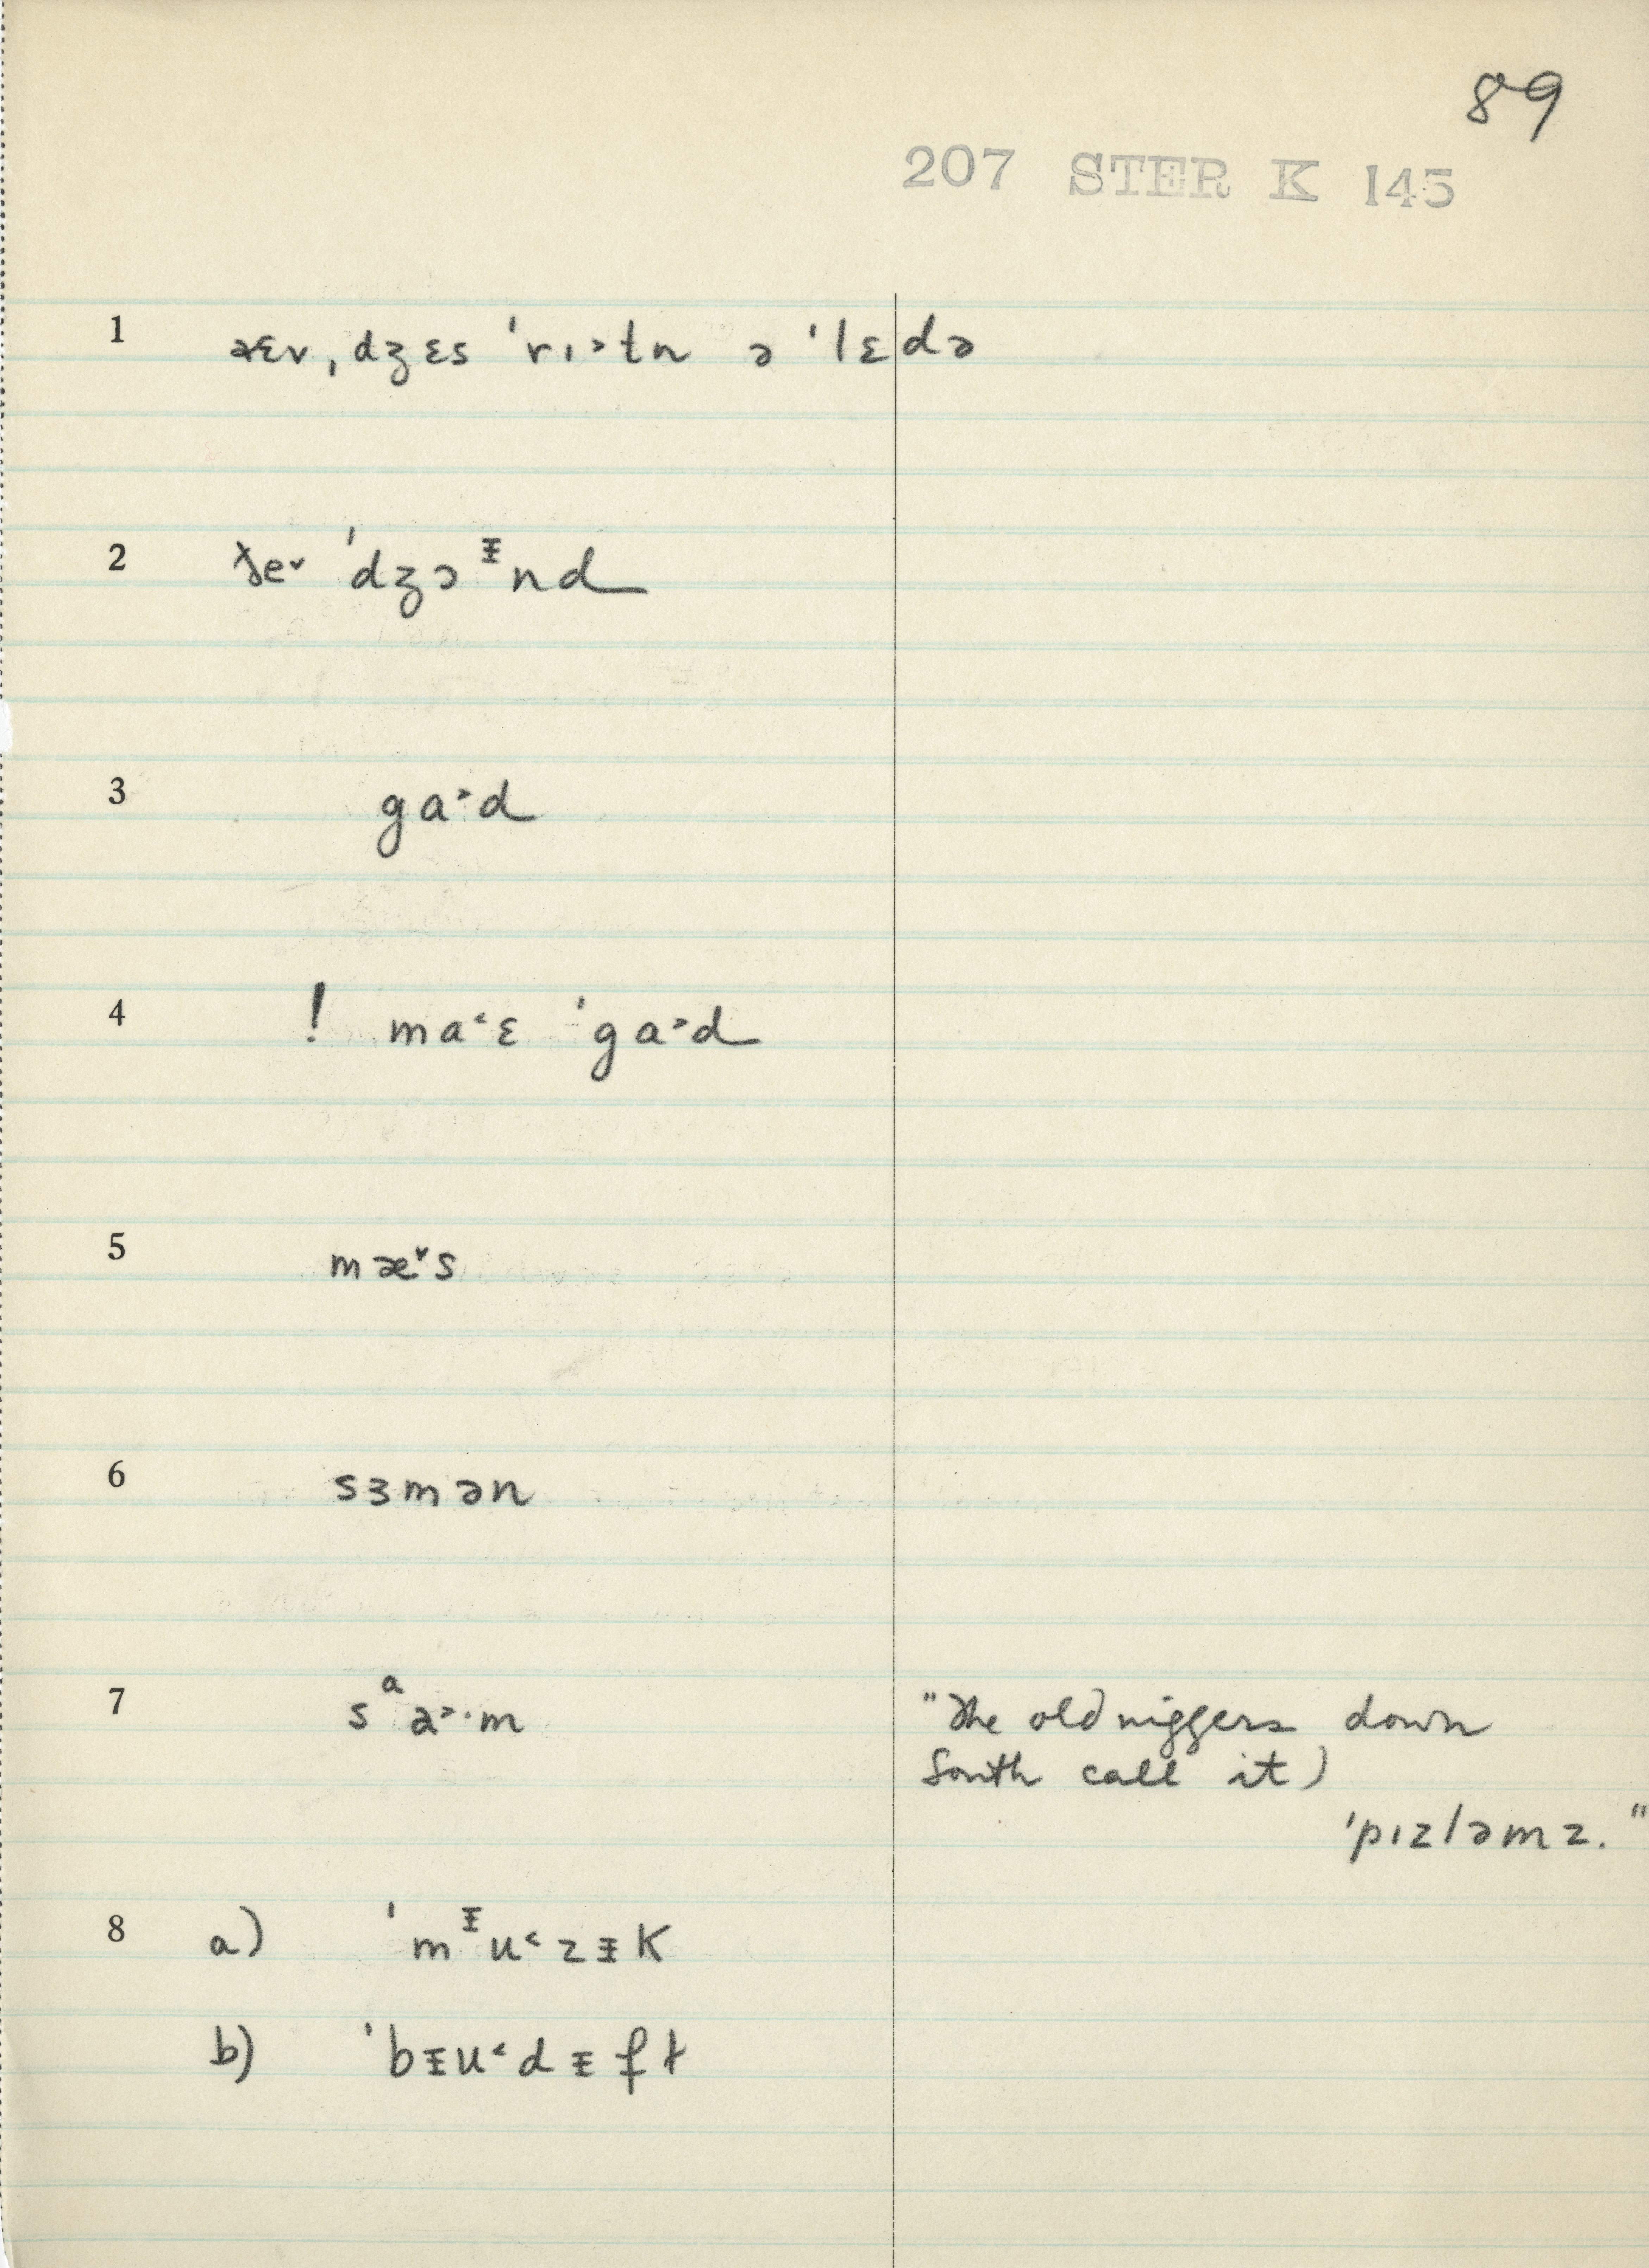 89
207 STER K 145
1 əɛv ˌdʒɛs ˈrɪ˃tn ə ˈlɛdə
2 ðe˅ ˈdʒɔᵻnd
3 ga˃d
4 ! ma˂ɛ ˈga˃d
5 mæ˅s
6 sɜmən
7 sᵃa˃·m "The old niggers down
South call it)
ˈpɪzləmz."
8 a) ˈmᵻu˂zᵻk
b) ˈbᵻu˂dᵻft